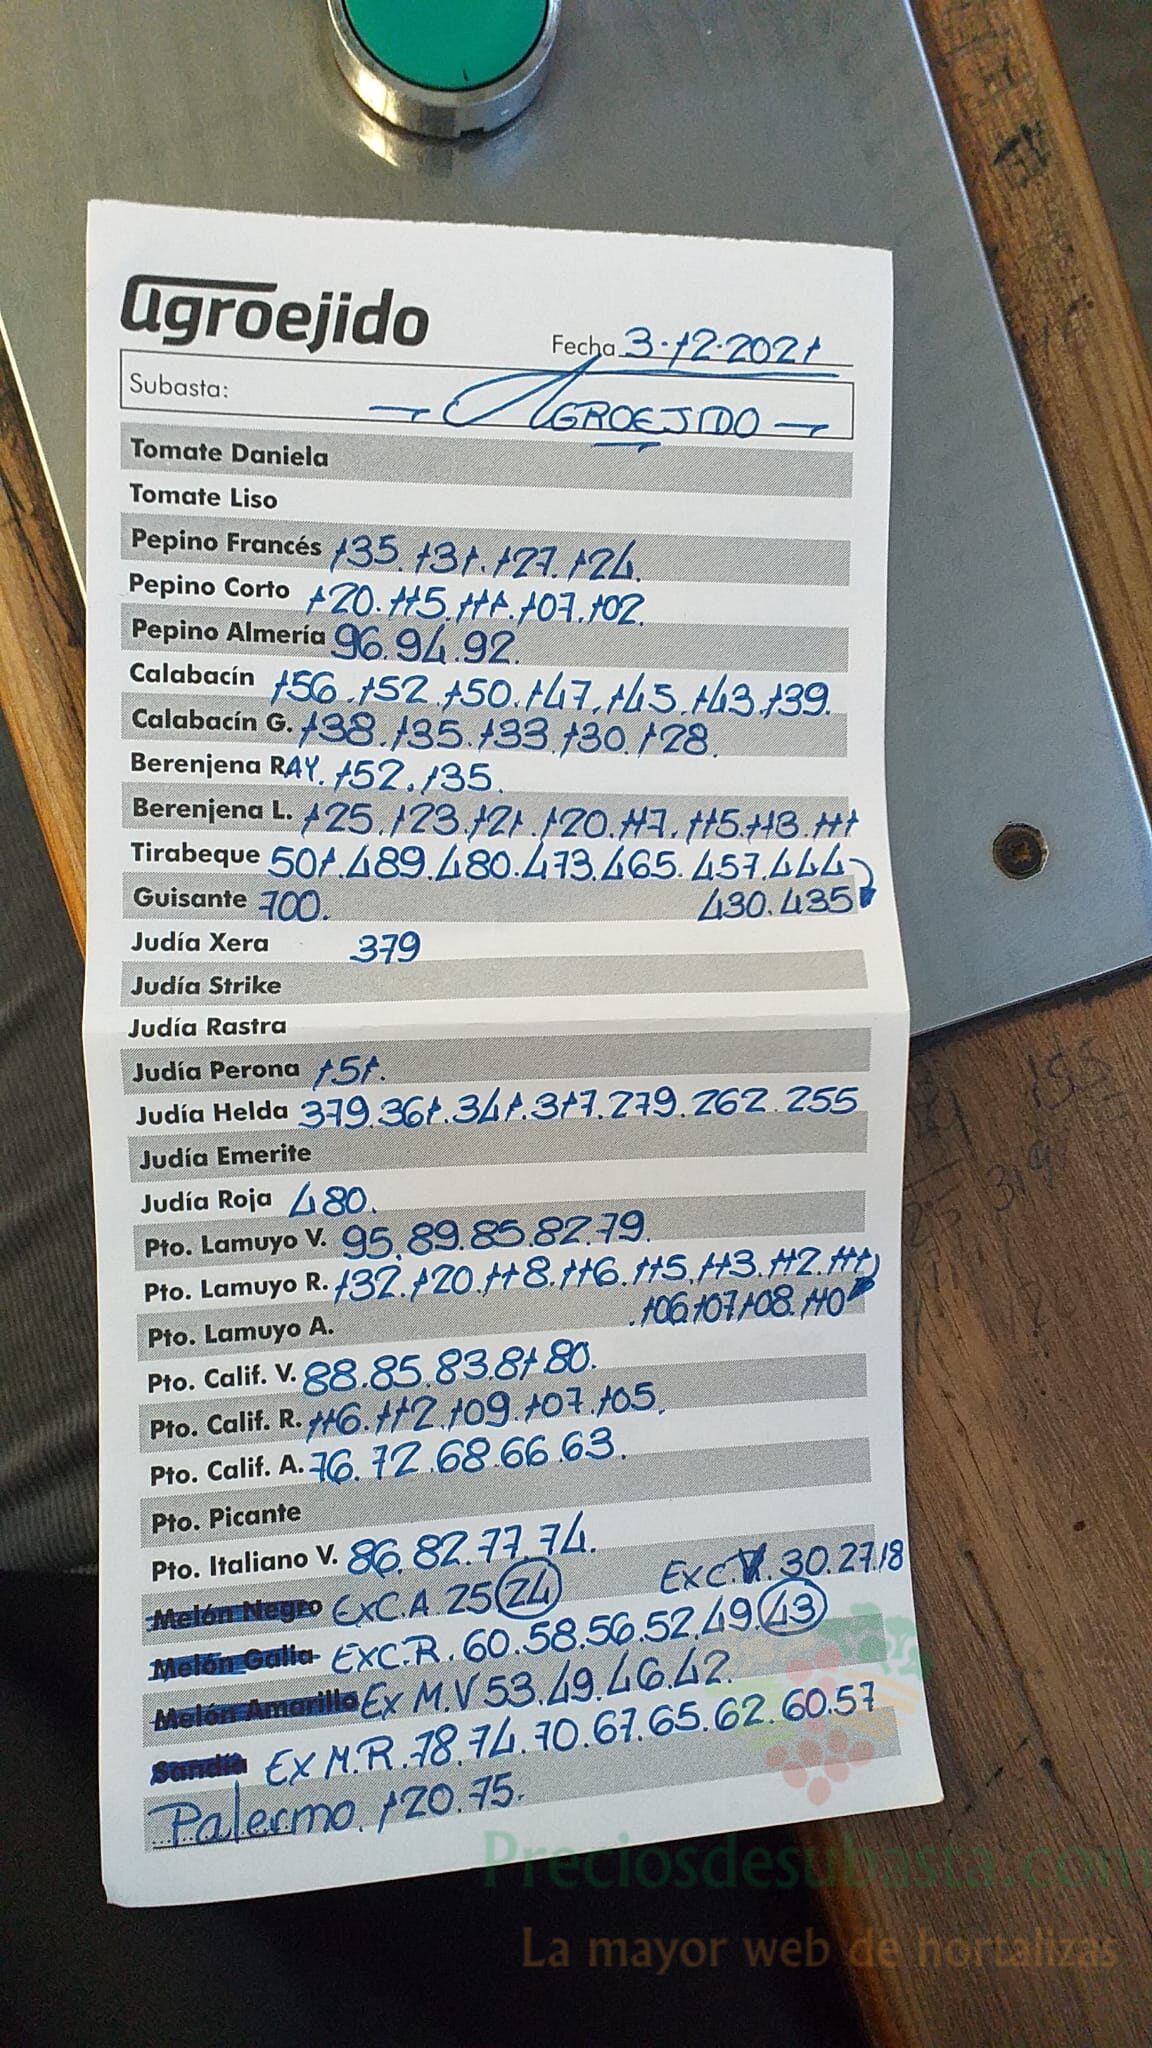 agroejido
Fecha 3.12.2021
Subasta: AGROEJIDO
Tomate Daniela
Tomate Liso
Pepino Francés 135.131.127.124.
Pepino Corto 120.115.111.107.102.
Pepino Almería 96.94.92.
Calabacín 156.152.150.147.145.143.139.
Calabacín G. 138.135.133.130.128.
Berenjena RAY. 152.135.
Berenjena L. 125.123.121.120.117.115.113.111
Tirabeque 501.489.480.473.465.457.444
Guisante 700. 430.435
Judía Xera 379
Judía Strike
Judía Rastra
Judía Perona 151.
Judía Helda 379.361.341.317.279.262.255
Judía Emerite
Judía Roja 480.
Pto. Lamuyo V. 95.89.85.82.79.
Pto. Lamuyo R. 132.120.118.116.115.113.112.111
Pto. Lamuyo A. .106.107.108.110
Pto. Calif. V. 88.85.83.81.80.
Pto. Calif. R. 116.112.109.107.105.
Pto. Calif. A. 76.72.68.66.63.
Pto. Picante
Pto. Italiano V. 86.82.77.74.
Melón Negro ExC.A. 25 24 ExC.V. 30.27.18
Melón Galia ExC.R. 60.58.56.52.49.43
Melón Amarillo Ex M.V 53.49.46.42.
Sandía Ex M.R. 78.74.70.67.65.62.60.57
Palermo. 120.75.
Preciosdesubasta.com
La mayor web de hortalizas